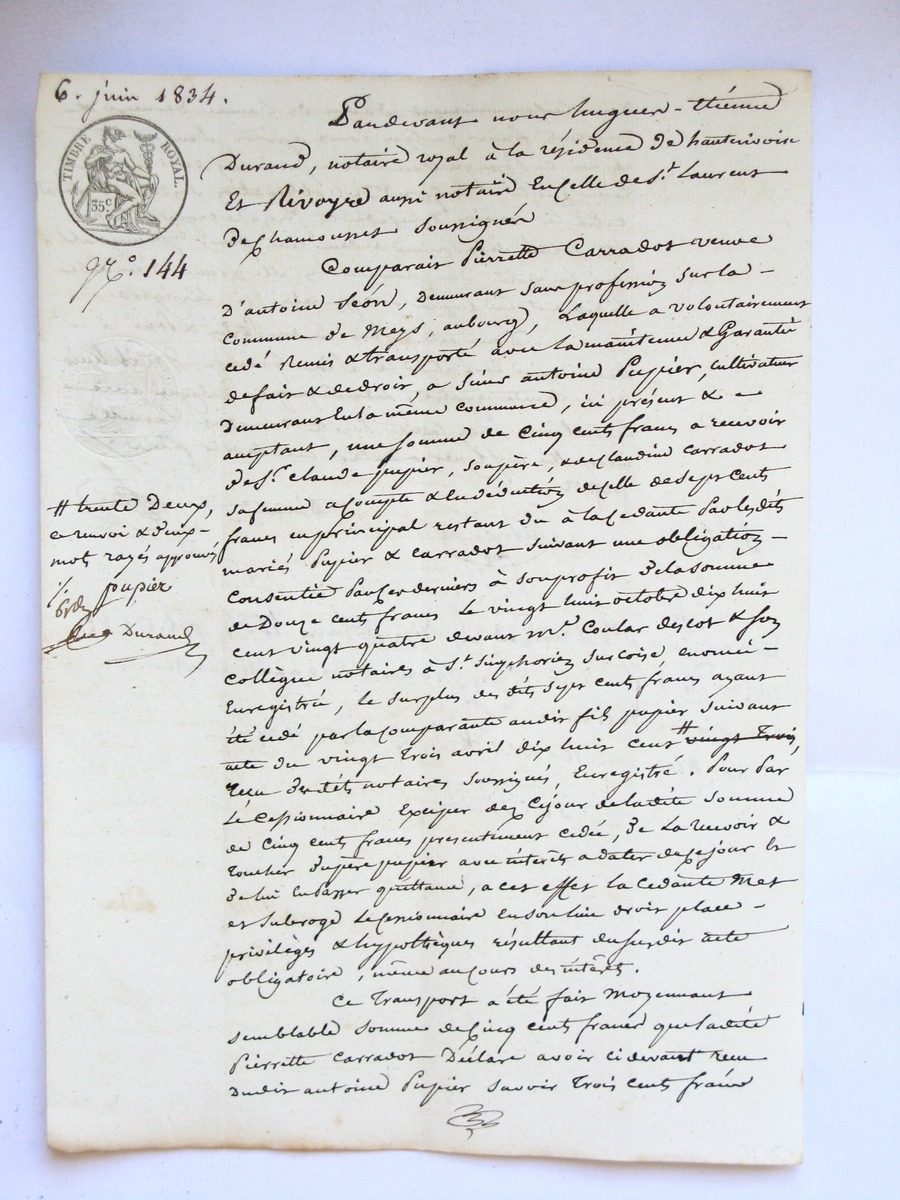 6. juin 1834.
TIMBRE ROYAL.
35c.
No. 144
Pardevant nous hugues-étienne
Durand, notaire royal à la résidence de hauterivoire
Et Rivoyre aussi notaire En celle de St. Laurent
de Chamousset soussignés
Comparait Pierrette Carradot veuve
D'antoine Léon, demeurant sans profession sur la
commune de Meys, au bourg, Laquelle a volontairement
cédé Remis & transporté avec la maintenue & Garantie
de fait & de droit, a Sieur antoine Pupier, cultivateur
Demeurant En la même commune, ici présent & -
acceptant, une somme de Cinq cents francs a recevoir
de Sr. Claude pupier, son père, & de Claudine Carradot
sa femme a compte & En déduction de celle de Sept cents
francs en principal restant du à la Cedante Par les dits
mariés Pupier & Carradot suivant une obligation -
Consentie Par ces derniers à son profit de la somme
de Douze cents francs Le vingt huit octobre dix huit
cent vingt quatre devant Me. Coular descot & son
collègue notaires à St. Simphorien sur Coise,
Enregistré, le surplus des dits sept cents francs ayant
été cédé par la Comparante au dit fils pupier suivant
acte du vingt trois avril dix huit cent # vingt trois
reçu des dits notaires soussignés, Enregistré. Pour Par
Le Cessionnaire Exciper dez Cejour de la dite somme
de Cinq cents francs presentement cedée, de La recevoir &
Toucher du père pupier avec intérêts a dater de ce jour Et
de lui En Passer quittance, a cet effet la Cedante Met
et Subroge Le Cessionnaire En son lieu droit place -
privilèges & hypothèques résultant du susdit acte
obligatoire, même au cours des intérêts.
Ce Transport a été fait Moyennant
semblable somme de Cinq cents francs que la dite
Pierrette Carradot Déclare avoir ci devant recu
Dudit antoine Pupier savoir Trois cents francs
# trente Deux,
ce renvoi & deux -
mot rayés approuvés
pupier
Durand